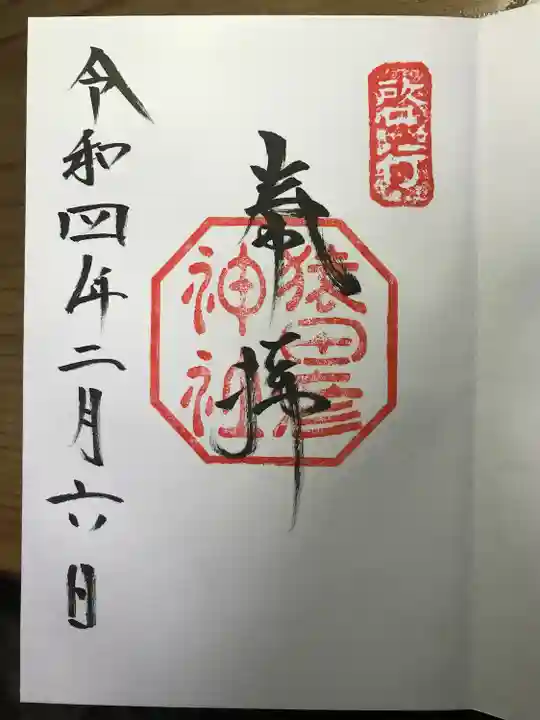 啓行
奉拝
猿田彦
神社
令和四年二月六日